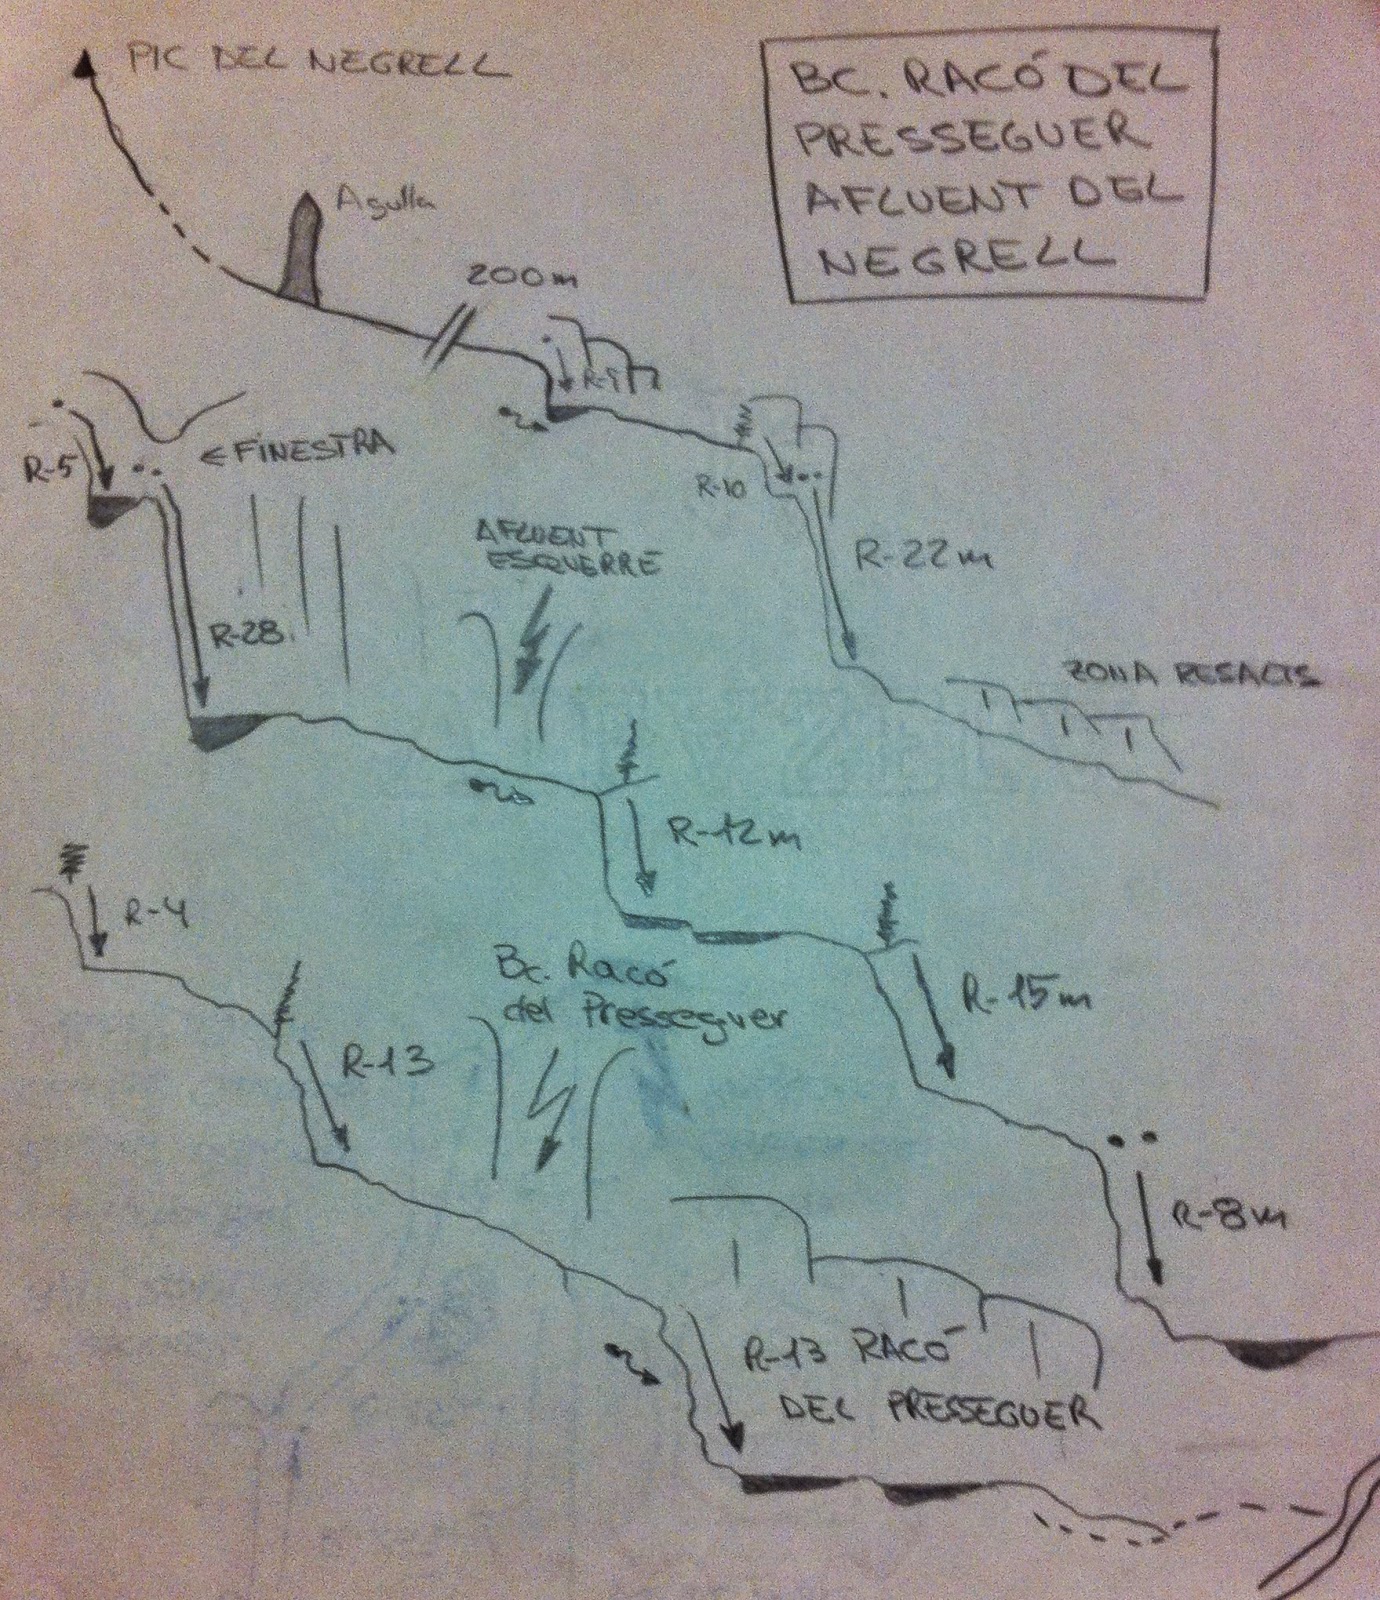 PIC DEL NEGRELL
BC. RACÓ DEL
PRESSEGUER
AFLUENT DEL
NEGRELL
Agulla
200m
R-9
R-10
R-22m
ZONA RESALTS
R-5
← FINESTRA
R-28
AFLUENT
ESQUERRE
R-12m
R-15m
R-8m
R-4
R-13
Bc. Racó
del Presseguer
R-13 RACÓ
DEL PRESSEGUER